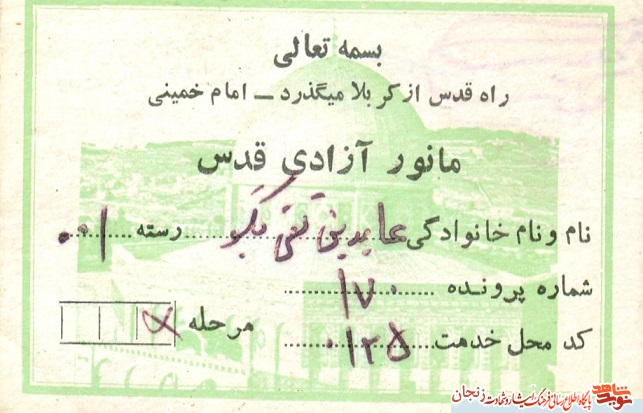 بسمه تعالی
راه قدس از کربلا میگذرد ــ امام خمینی
مانور آزادی قدس
نام و نام خانوادگی عابدین تقی بگلو رسته ۰۰۱
شماره پرونده ۱۷۰
کد محل خدمت ۰۱۲۵ مرحله
نوید شاهد پایگاه اطلاع رسانی فرهنگ ایثار و شهادت زنجان